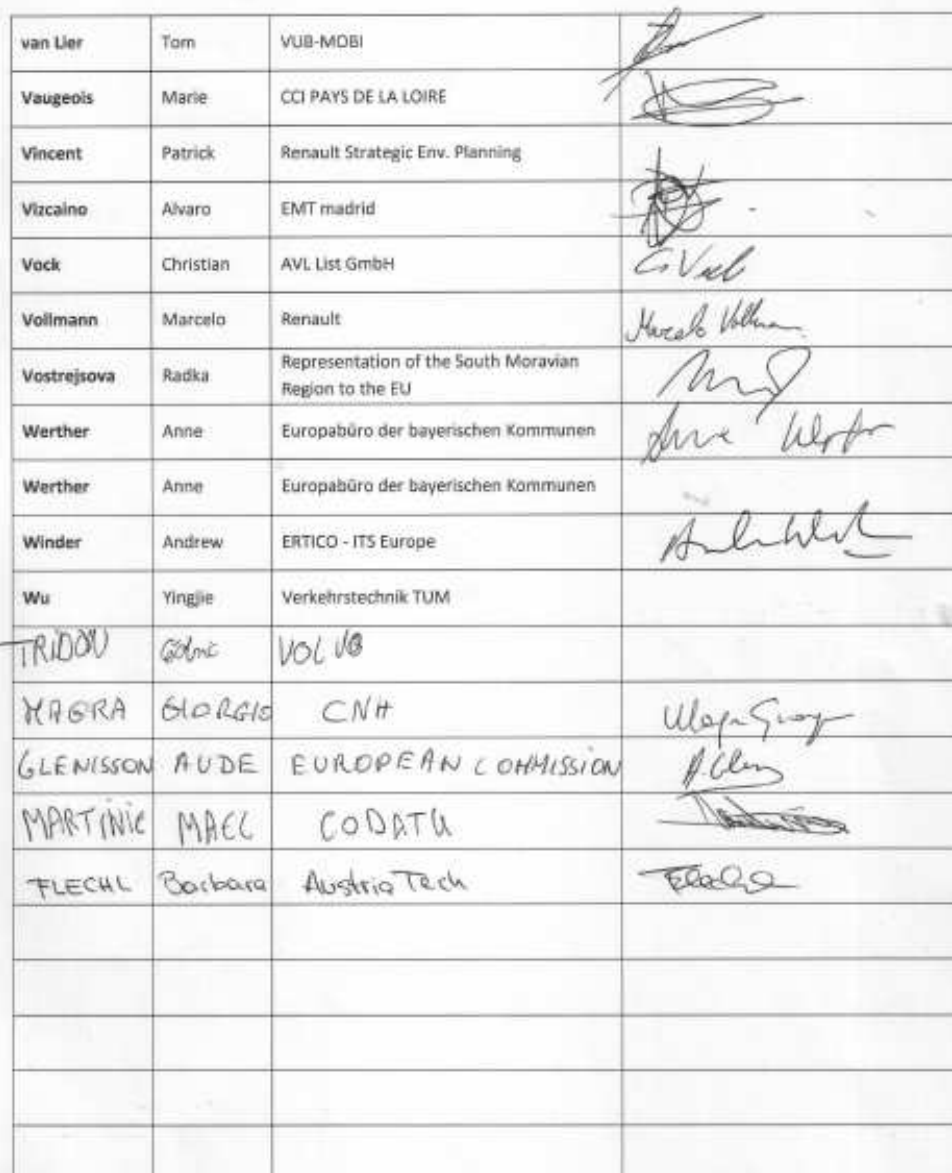 van Lier Tom VUB-MOBI
Vaugeois Marie CCI PAYS DE LA LOIRE
Vincent Patrick Renault Strategic Env. Planning
Vizcaino Alvaro EMT madrid
Vock Christian AVL List GmbH
Vollmann Marcelo Renault Marcelo Vollmann
Vostrejsova Radka Representation of the South Moravian
Region to the EU
Werther Anne Europabüro der bayerischen Kommunen
Werther Anne Europabüro der bayerischen Kommunen
Winder Andrew ERTICO - ITS Europe
Wu Yingjie Verkehrstechnik TUM
TRIDON VOLVO
MAGRA GIORGIO CNH
GLENISSON AUDE EUROPEAN COMMISSION
MARTINIE MAEL CODATU
FLECHL Barbara AustriaTech